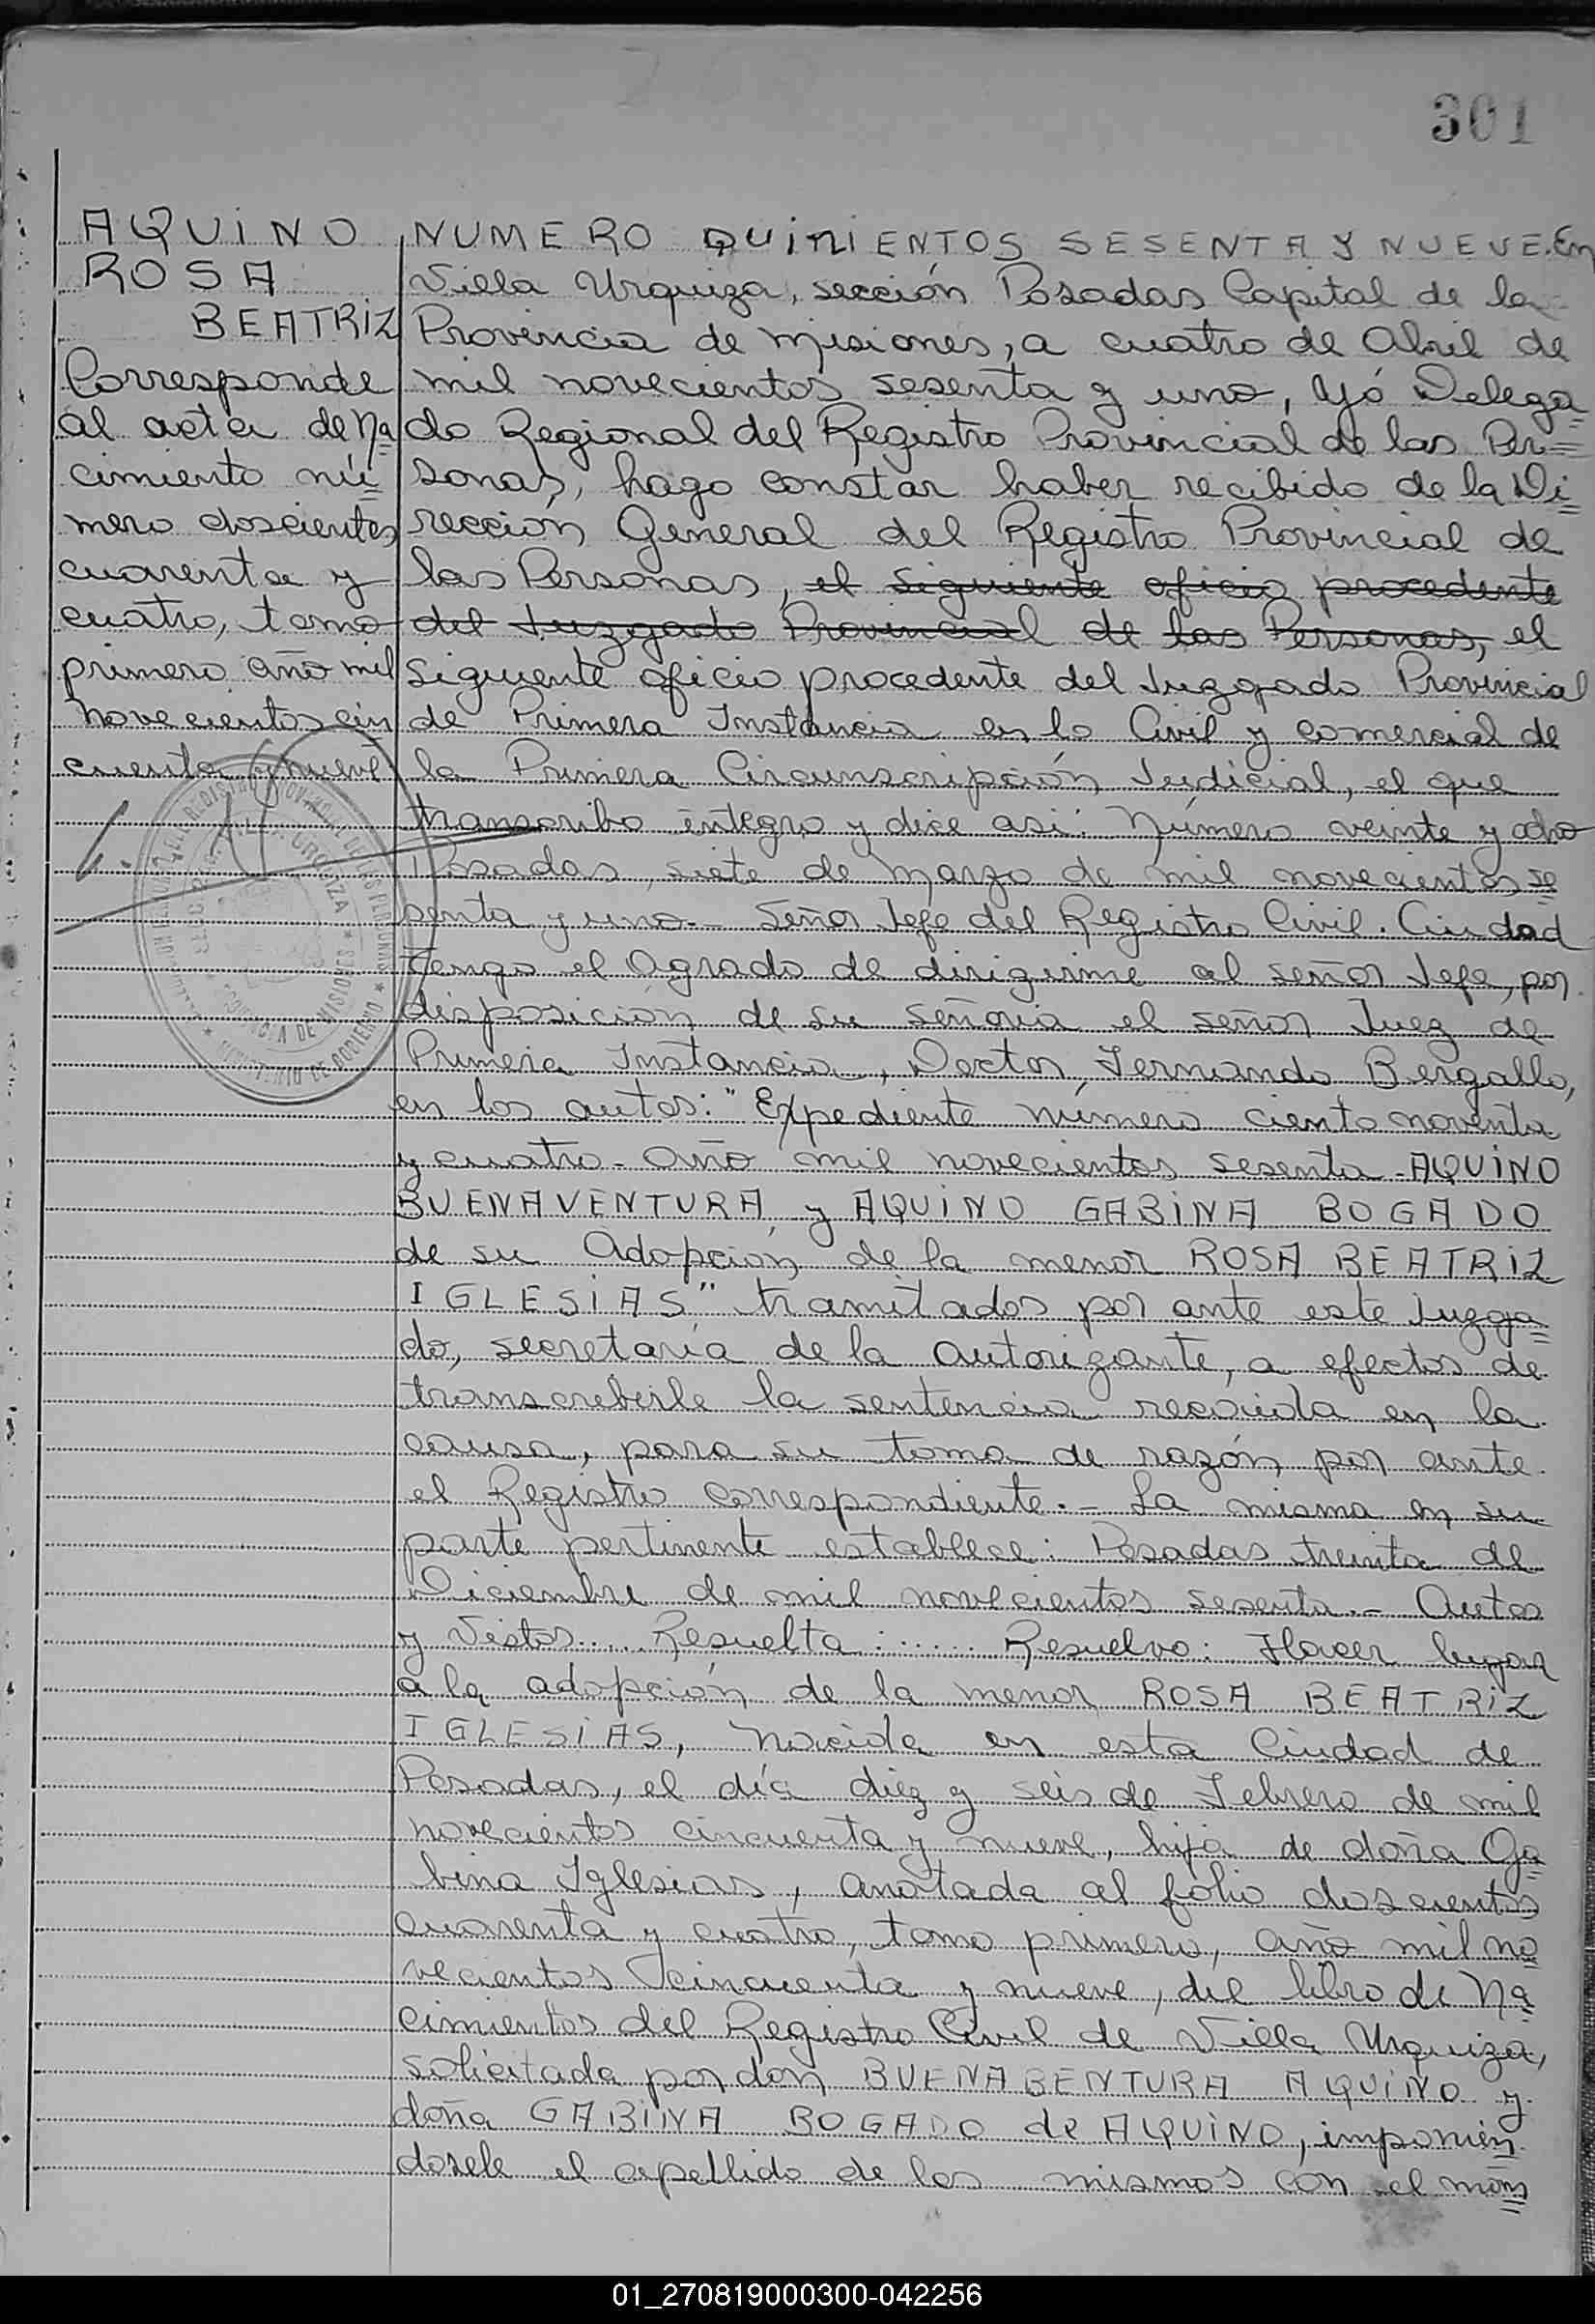 301
AQUINO
ROSA
BEATRIZ
Corresponde
al acta de Na
cimiento nú
mero doscientos
cuarenta y
cuatro, tomo
primero año mil
novecientos cin
cuenta y nueve
NUMERO QUINIENTOS SESENTA Y NUEVE. En
Villa Urquiza, sección Posadas Capital de la
Provincia de Misiones, a cuatro de Abril de
mil novecientos sesenta y uno, Yó Delega
do Regional del Registro Provincial de las Per
sonas, hago constar haber recibido de la Di
rección General del Registro Provincial de
las Personas, el siguiente oficio procedente
del Juzgado Provincial de las Personas, el
siguiente oficio procedente del Juzgado Provincial
de Primera Instancia en lo Civil y comercial de
la Primera Circunscripción Judicial, el que
transcribo integro y dice asi: Número veinte y ocho
Posadas, siete de Marzo de mil novecientos se
senta y uno.- Señor Jefe del Registro Civil. Ciudad
Tengo el Agrado de dirigirme al señor Jefe, por
disposición de su señoria el señor Juez de
Primera Instancia, Doctor Fernando Bergallo,
en los autos: "Expediente número ciento noventa
y cuatro - año mil novecientos sesenta - AQUINO
BUENAVENTURA y AQUINO GABINA BOGADO
de su Adopción de la menor ROSA BEATRIZ
IGLESIAS" tramitados por ante este Juzga
do, secretaría de la autorizante, a efectos de
transcrebirle la sentencia recaída en la
causa, para su toma de razón por ante
el Registro correspondiente.- La misma en su
parte pertinente establece: Posadas treinta de
Diciembre de mil novecientos sesenta.- Autos
y Vistos..... Resuelta:...... Resuelvo: Hacer lugar
a la adopción de la menor ROSA BEATRIZ
IGLESIAS, nacida en esta Ciudad de
Posadas, el día diez y seis de Febrero de mil
novecientos cincuenta y nueve, hija de doña Ga
bina Iglesias, anotada al folio doscientos
cuarenta y cuatro, tomo primero, año mil no
vecientos cincuenta y nueve, del libro de Na
cimientos del Registro Civil de Villa Urquiza,
solicitada por don BUENABENTURA AQUINO y
doña GABINA BOGADO de AQUINO, imponién
dosele el apellido de los mismos con el nom
01_270819000300-042256